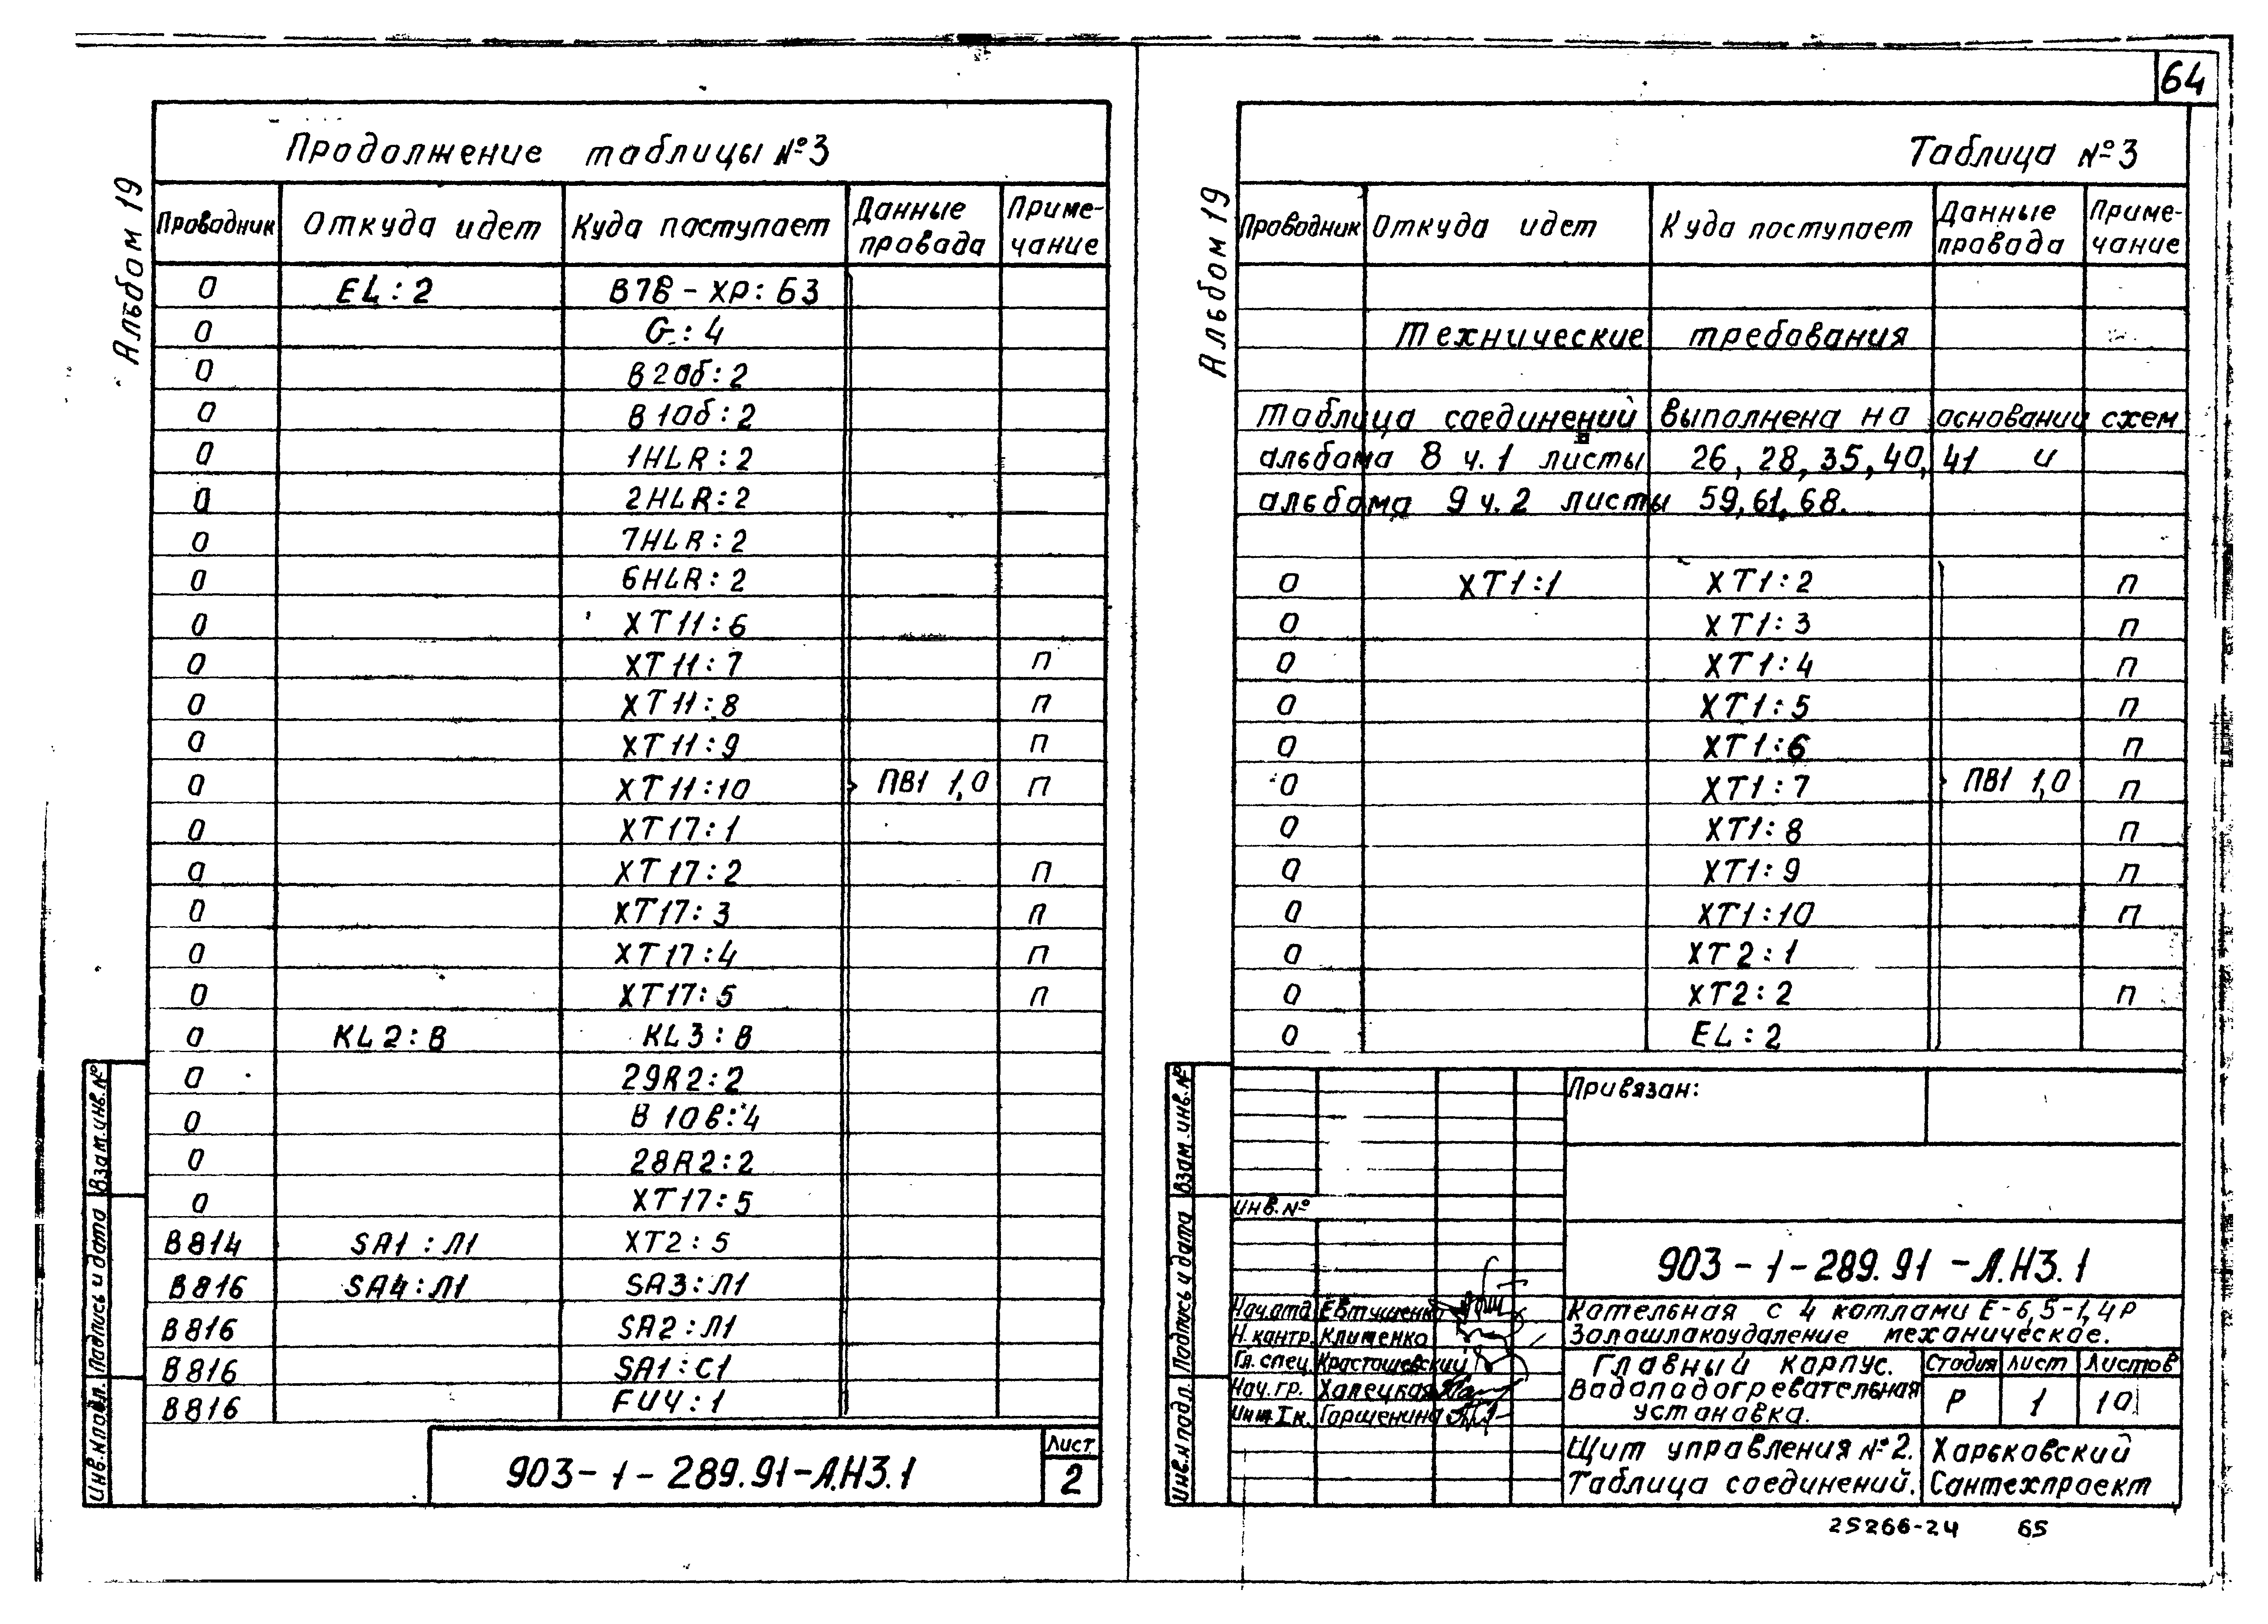 64
Альбом 19
Продолжение таблицы №3
Проводник Откуда идет Куда поступает Данные провода Приме-чание
0 EL:2 В7б-ХР:Б3
0 G:4
0 В20б:2
0 В10б:2
0 1HLR:2
0 2HLR:2
0 7HLR:2
0 6HLR:2
0 XT11:6
0 XT11:7 п
0 XT11:8 п
0 XT11:9 п
0 XT11:10 ПВ1 1,0 п
0 XT17:1
0 XT17:2 п
0 XT17:3 п
0 XT17:4 п
0 XT17:5 п
0 KL2:В KL3:В
0 29R2:2
0 В10в:4
0 28R2:2
0 XT17:5
В814 SA1:Л1 XT2:5
В816 SA4:Л1 SA3:Л1
В816 SA2:Л1
В816 SA1:С1
В816 FU4:1
Взам.инв.№
Подпись и дата
Инв.№ подл.
903-1-289.91-А.НЗ.1
Лист
2
Альбом 19
Таблица №3
Проводник Откуда идет Куда поступает Данные провода Приме-чание
Технические требования
Таблица соединений выполнена на основании схем
альбома 8 ч.1 листы 26, 28, 35, 40, 41 и
альбома 9 ч.2 листы 59, 61, 68.
0 XT1:1 XT1:2 п
0 XT1:3 п
0 XT1:4 п
0 XT1:5 п
0 XT1:6 п
0 XT1:7 ПВ1 1,0 п
0 XT1:8 п
0 XT1:9 п
0 XT1:10 п
0 XT2:1
0 XT2:2 п
0 EL:2
Взам.инв.№
Подпись и дата
Инв.№ подл.
Привязан:
Инв.№
903-1-289.91-А.НЗ.1
Нач.отд. Евтушенко
Н.контр. Клименко
Гл.спец. Красташевский
Нач.гр. Халецкая
Инж.Iк. Гаршенина
Котельная с 4 котлами Е-6,5-1,4Р
Золошлакоудаление механическое.
Главный корпус.
Водоподогревательная
установка.
Стадия Лист Листов
Р 1 10
Щит управления №2.
Таблица соединений.
Харьковский
Сантехпроект
25266-24 65